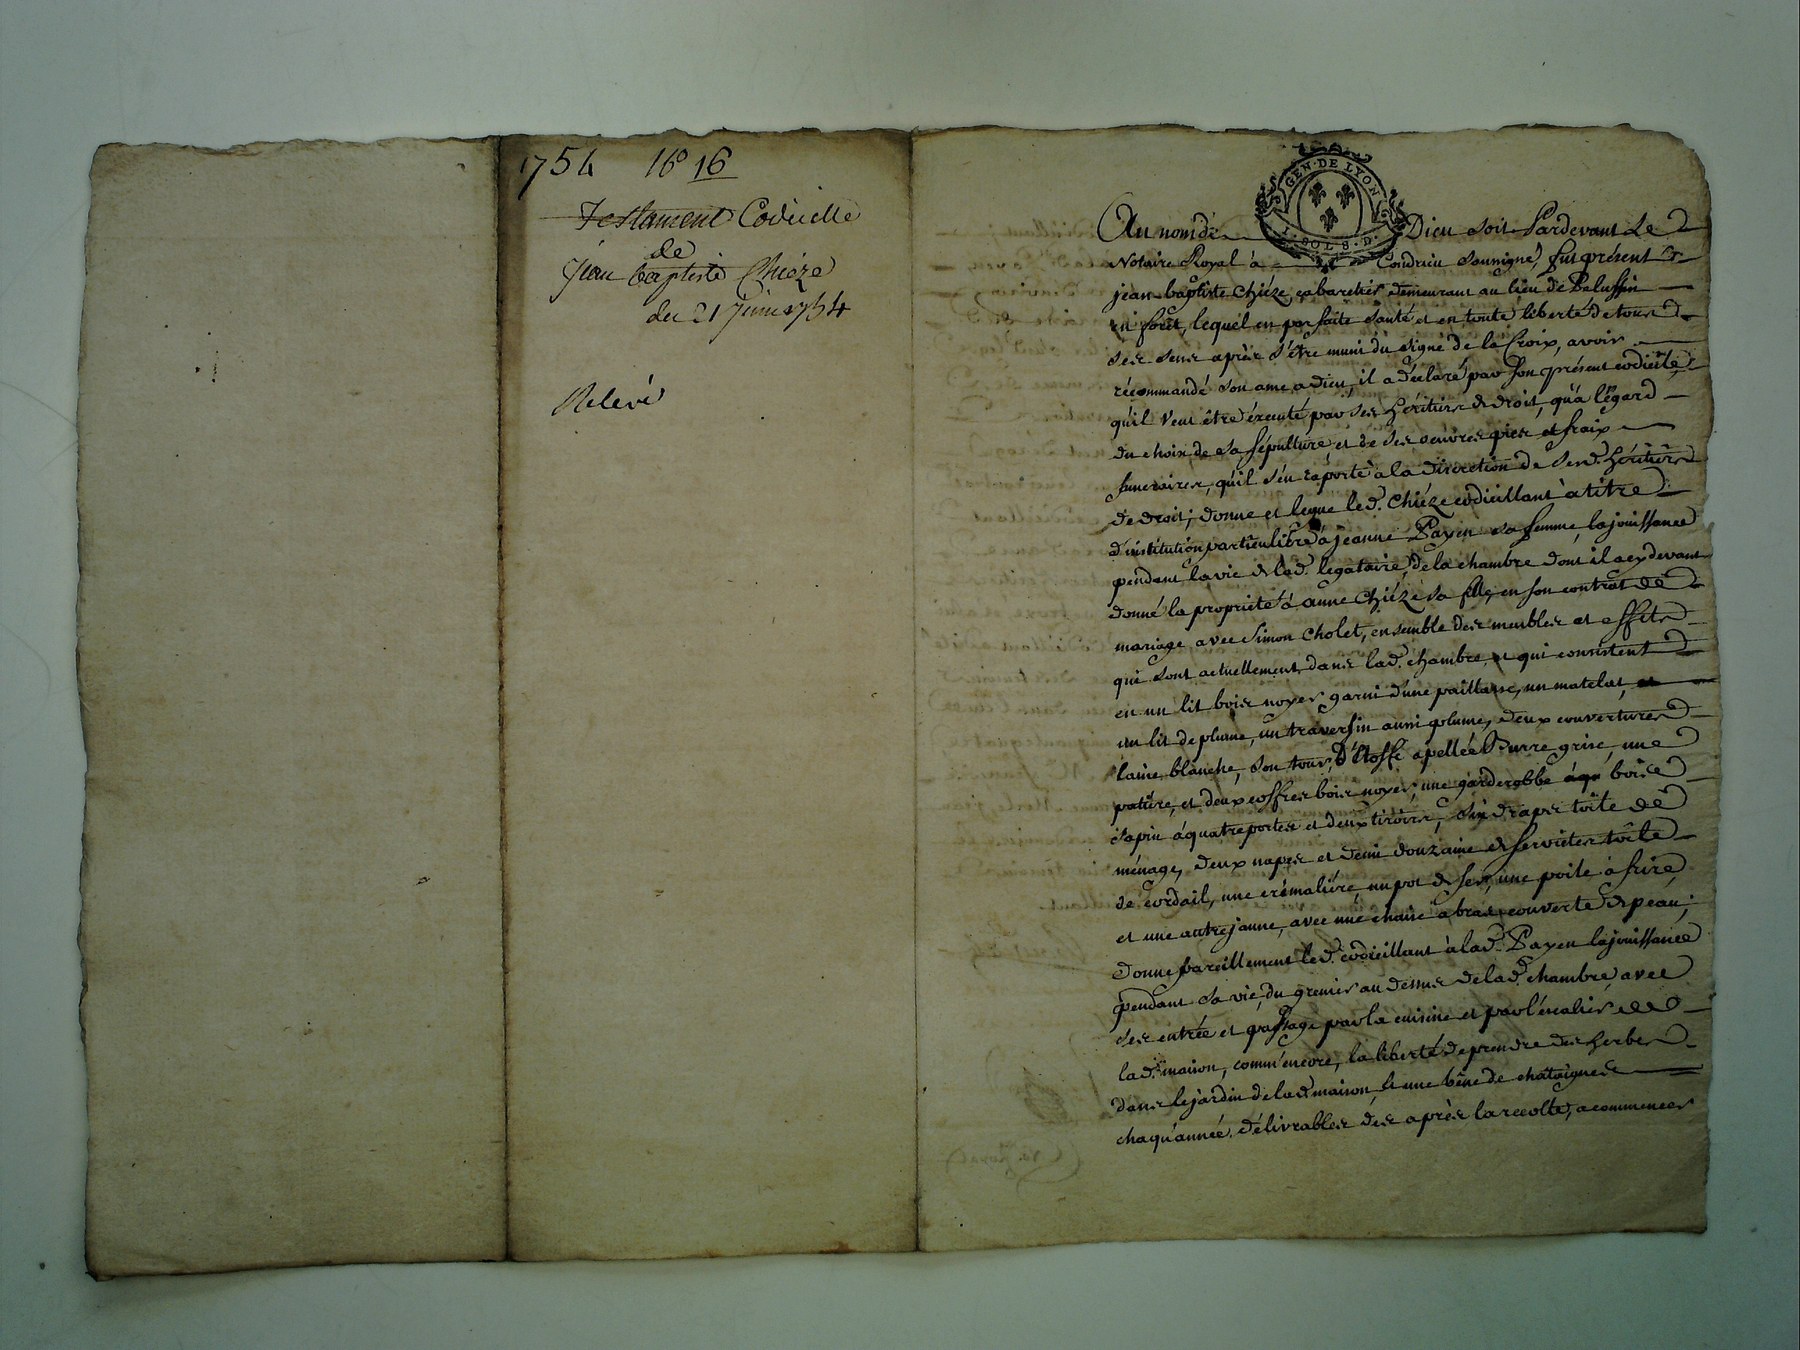 1754 16° 16
Testament Codicille
de
Jean baptiste Chiéze
du 21 Juin 1754
Relevé
GEN · DE LYON
I · SOL 8 · D ·
Au nom de Dieu soit Pardevant Le
Notaire Royal à Condrieu soussigné, fut présent
jean-baptiste Chiéze cabaretier demeurant au lieu de Pelussin
en forêt, lequel en parfaite santé et en toute liberté de tous
ses sens après s'être muni du signe de la Croix, avoir
récommandé son ame a Dieu, il a déclaré par son présent codicile,
qu'il veut être éxécuté par ses héritiers de droit, qu'à l'égard
du choix de sa sépulture, et de ses oeuvres pies et fraix
funeraires, qu'il s'en raporte à la discretion de sesd. héritiers
de droit; donne et legue led. Chiéze codicillant à titre
d'institution particuliére à jeanne Payen sa femme, la jouissance
pendant la vie de lad. legataire, de la chambre dont il a cy devant
donné la proprieté à anne Chiéze sa fille, en son contrat de
mariage avec Simon Cholet, ensemble des meubles et effets
qui sont actuellement dans lad. chambre, et qui consistent
en un lit bois noyer garni d'une paillasse, un matelat,
un lit de plume, un traversin aussi plume, deux couvertures
laine blanche, son tour d'étoffe apellée Burre grise, une
patûre, et deux coffres bois noyer, une garderobbe bois
sapin à quatre portes et deux tiroirs, six draps toile de
ménage, deux napes et demi douzaine de serviétes toile
de cordail, une crémaliére, un pot de fer, une poile à frire,
et une autre jaune, avec une chaise à bras couverte de peau;
donne pareillement led. codicillant à lad. Payen la jouissance
pendant sa vie, du grenier au dessus de lad. chambre, avec
ses entrée et passage par la cuisine et par l'éscalier de
lad. maison, comm'encore, la liberté de prendre des herbes
dans le jardin de lad. maison, et une bêne de chataignes
chaqu'année, délivrables des après la récolte, a commencer